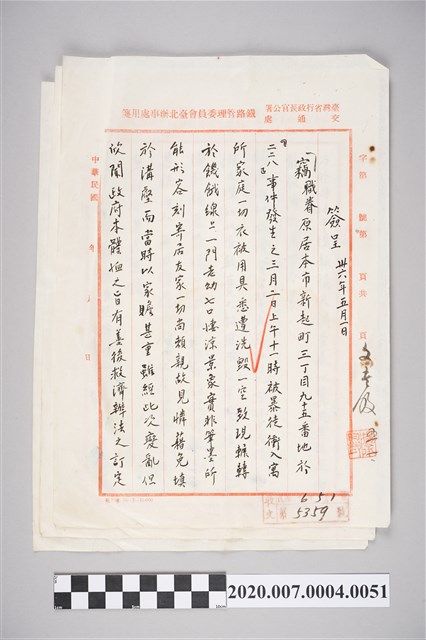 臺灣省行政長官公署
交通處
鐵路管理委員會臺北辦事處用箋
字第 號第 頁共 頁
簽呈 卅六年五月一日
竊職眷原居本市新起町三丁目九十五番地於
二二八事件發生之三月二日上午十一時被暴徒衝入寓
所家庭一切衣被用具悉遭洗毀一空致現輾轉
於饑餓線上一門老幼七口悽涼景象實非筆墨所
能形容刻寄居友家一切尚賴親故見憐藉免填
於溝壑而當時以家贍甚重雖經此次變亂但
欣聞政府本體恤之旨有善後救濟辦法之訂定
中華民國
收文
6 5 1
5359
2020.007.0004.0051